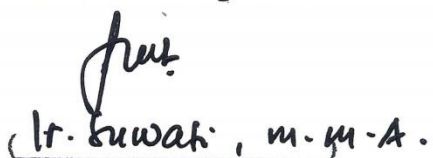 (Ir. Suwati, M.M.A.